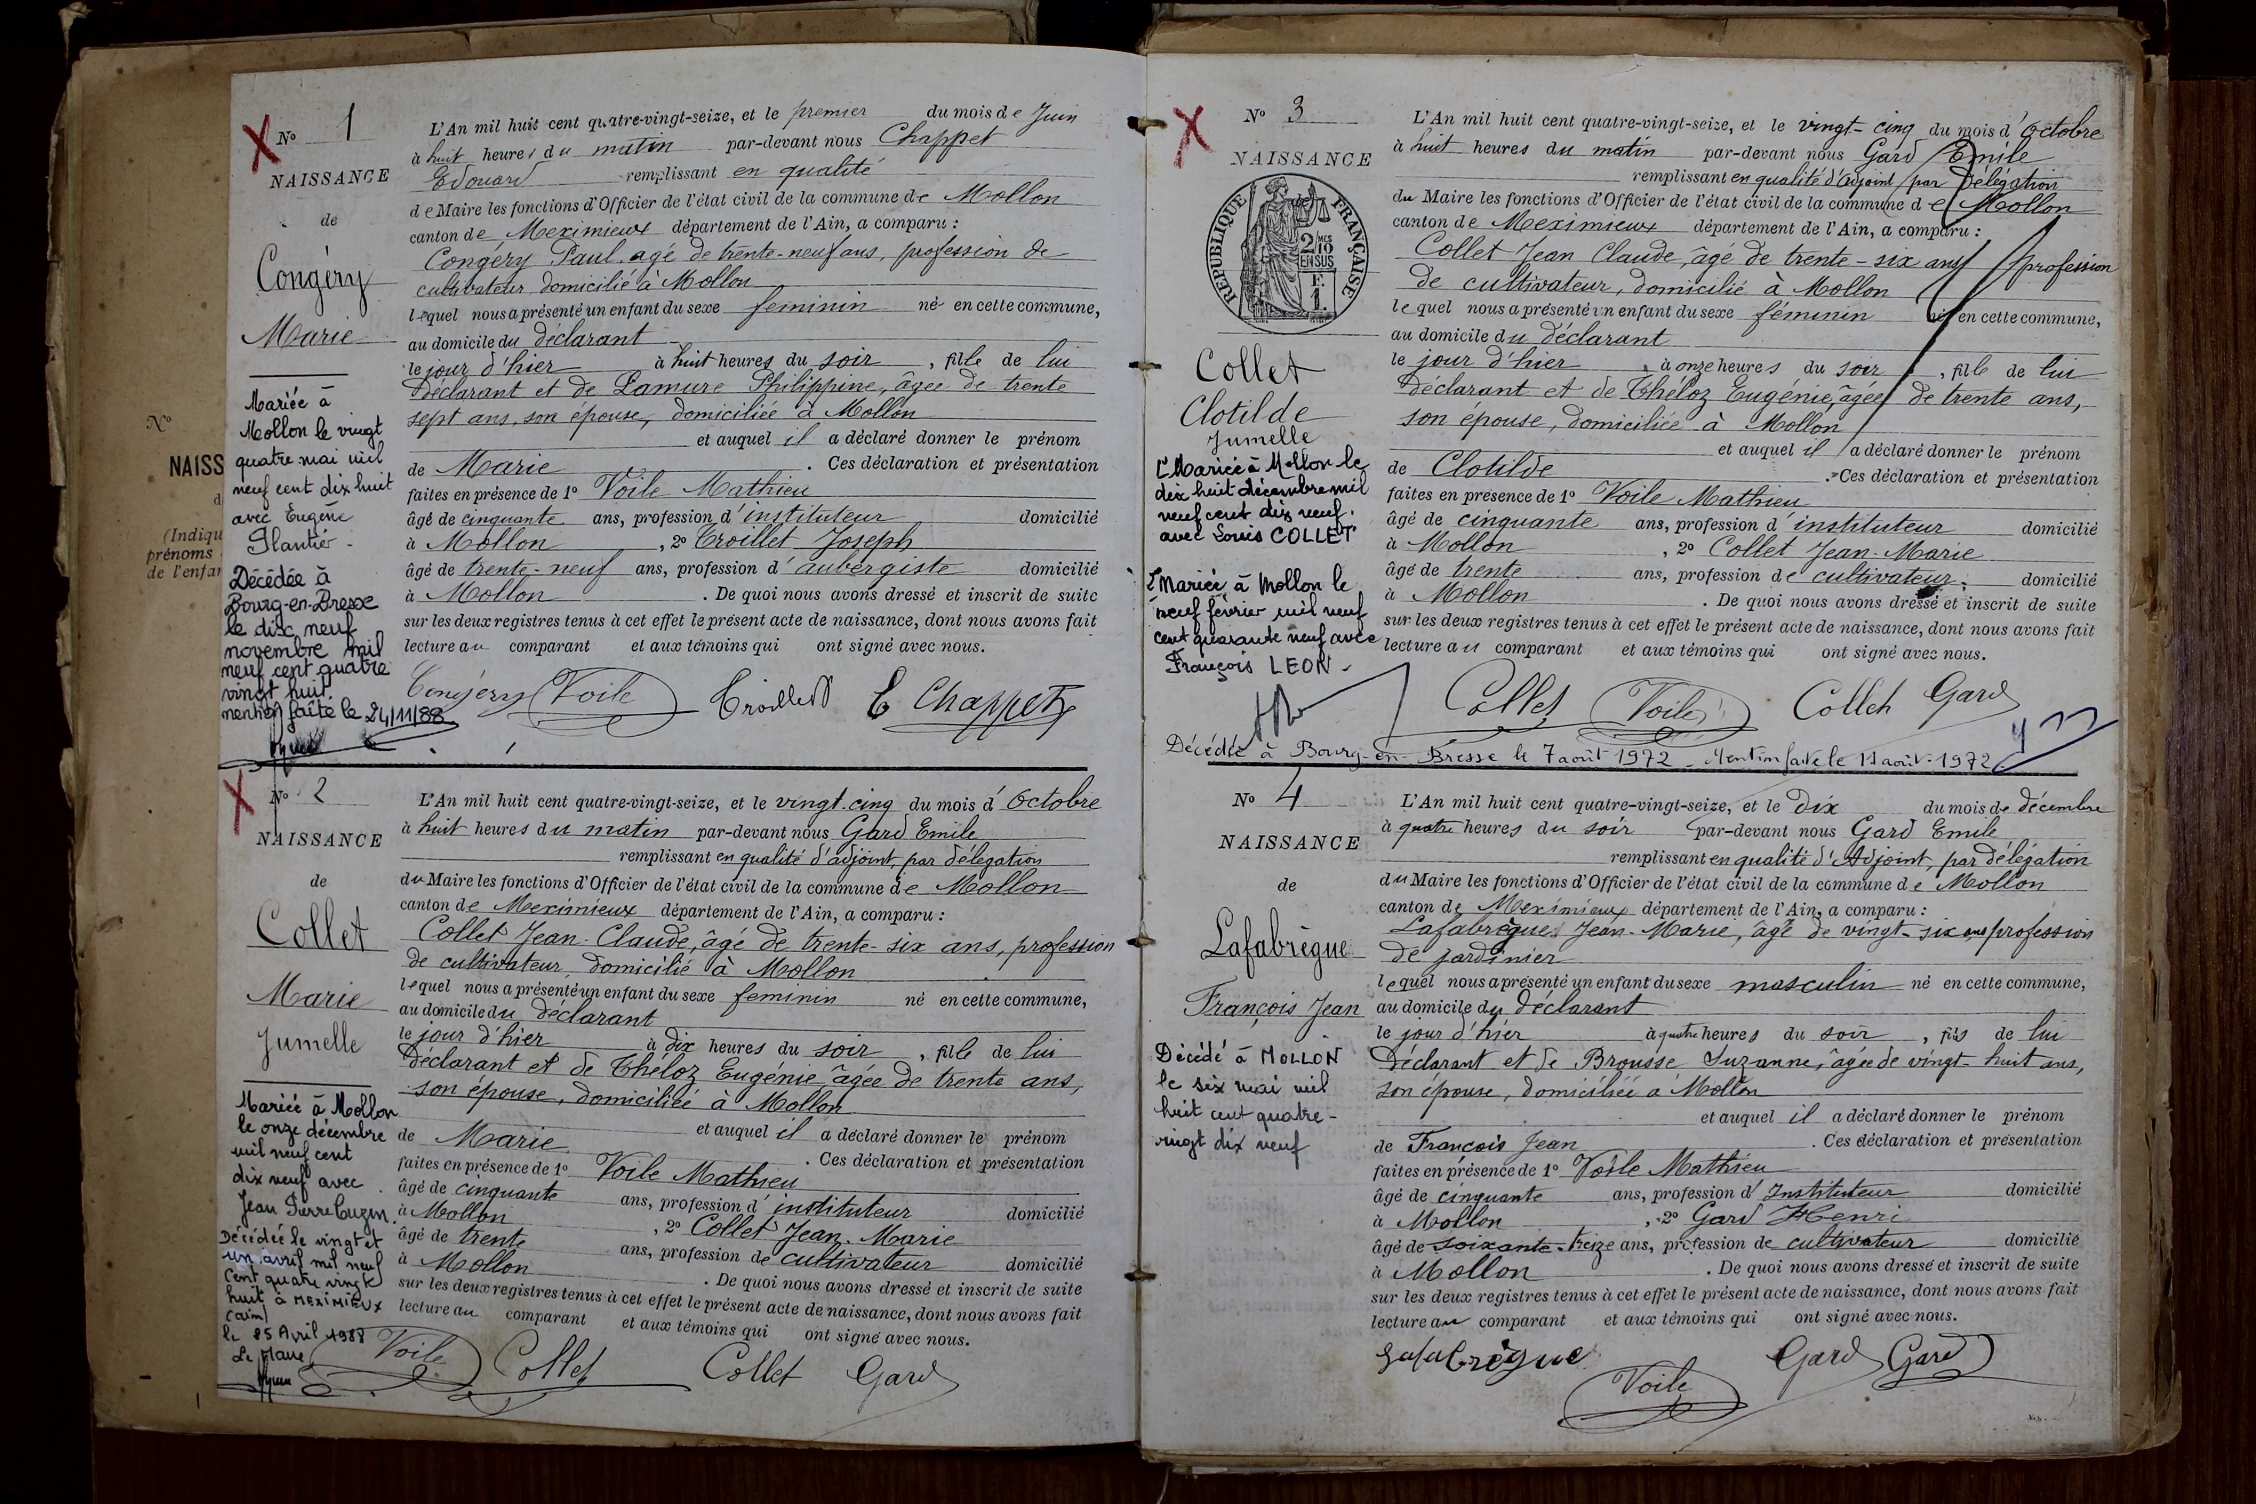 Nº 1
NAISSANCE
de
Congéry
Marie
Mariée à
Mollon le vingt
quatre mai mil
neuf cent dix huit
avec Eugène
Plantier -
Décédée à
Bourg-en-Bresse
le dix neuf
novembre mil
neuf cent quatre
vingt huit.
mention faite le 24/11/88
L'An mil huit cent quatre-vingt-seize, et le premier du mois de Juin
à huit heures du matin par-devant nous Chappet
Edouard remplissant en qualité
de Maire les fonctions d'Officier de l'état civil de la commune de Mollon
canton de Meximieux département de l'Ain, a comparu :
Congéry Paul, agé de trente-neuf ans, profession de
cultivateur, domicilié à Mollon
lequel nous a présenté un enfant du sexe feminin né en cette commune,
au domicile du déclarant
le jour d'hier à huit heures du soir, fille de lui
déclarant et de Lamure Philippine, âgée de trente
sept ans, son épouse, domiciliée à Mollon
et auquel il a déclaré donner le prénom
de Marie. Ces déclaration et présentation
faites en présence de 1º Voile Mathieu
âgé de cinquante ans, profession d'instituteur domicilié
à Mollon, 2º Troillet Joseph
âgé de trente-neuf ans, profession d'aubergiste domicilié
à Mollon. De quoi nous avons dressé et inscrit de suite
sur les deux registres tenus à cet effet le présent acte de naissance, dont nous avons fait
lecture au comparant et aux témoins qui ont signé avec nous.
Congéry Voile Troillet E Chappet
Nº 2
NAISSANCE
de
Collet
Marie
Jumelle
Mariée à Mollon
le onze décembre
mil neuf cent
dix neuf avec
Jean Pierre Cuzin.
Décédée le vingt et
un avril mil neuf
cent quatre vingt
huit à MEXIMIEUX
(Ain)
le 25 Avril 1988
Le Maire
L'An mil huit cent quatre-vingt-seize, et le vingt-cinq du mois d'Octobre
à huit heures du matin par-devant nous Gard Emile
remplissant en qualité d'adjoint, par délégation
du Maire les fonctions d'Officier de l'état civil de la commune de Mollon
canton de Meximieux département de l'Ain, a comparu :
Collet Jean-Claude, âgé de trente-six ans, profession
de cultivateur, domicilié à Mollon
lequel nous a présenté un enfant du sexe feminin né en cette commune,
au domicile du déclarant
le jour d'hier à dix heures du soir, fille de lui
déclarant et de Théloz Eugénie, âgée de trente ans,
son épouse, domiciliée à Mollon
et auquel il a déclaré donner le prénom
de Marie. Ces déclaration et présentation
faites en présence de 1º Voile Mathieu
âgé de cinquante ans, profession d'instituteur domicilié
à Mollon, 2º Collet Jean-Marie
âgé de trente ans, profession de cultivateur domicilié
à Mollon. De quoi nous avons dressé et inscrit de suite
sur les deux registres tenus à cet effet le présent acte de naissance, dont nous avons fait
lecture au comparant et aux témoins qui ont signé avec nous.
Voile Collet Collet Gard
Nº
NAISS
(Indiqu
prénoms
de l'enfan
Nº 3
NAISSANCE
RÉPUBLIQUE FRANÇAISE
2/10 MES
EN SUS
F.
1.
Collet
Clotilde
Jumelle
1º Mariée à Mollon le
dix huit décembre mil
neuf cent dix neuf.
avec Louis COLLET
2º Mariée à Mollon le
neuf février mil neuf
cent quarante neuf avec
François LEON -
L'An mil huit cent quatre-vingt-seize, et le vingt-cinq du mois d'Octobre
à huit heures du matin par-devant nous Gard Emile
remplissant en qualité d'adjoint par délégation
du Maire les fonctions d'Officier de l'état civil de la commune de Mollon
canton de Meximieux département de l'Ain, a comparu :
Collet Jean Claude, âgé de trente-six ans, profession
de cultivateur, domicilié à Mollon
lequel nous a présenté un enfant du sexe féminin né en cette commune,
au domicile du déclarant
le jour d'hier, à onze heures du soir, fille de lui
déclarant et de Théloz Eugénie, âgée de trente ans,
son épouse, domiciliée à Mollon
et auquel il a déclaré donner le prénom
de Clotilde. Ces déclaration et présentation
faites en présence de 1º Voile Mathieu
âgé de cinquante ans, profession d'instituteur domicilié
à Mollon, 2º Collet Jean-Marie
âgé de trente ans, profession de cultivateur domicilié
à Mollon. De quoi nous avons dressé et inscrit de suite
sur les deux registres tenus à cet effet le présent acte de naissance, dont nous avons fait
lecture au comparant et aux témoins qui ont signé avec nous.
Collet Voile Collet Gard
Décédée à Bourg-en-Bresse le 7 août 1972 - Mention faite le 11 août 1972
Nº 4
NAISSANCE
de
Lafabrègue
François Jean
Décédé à MOLLON
le six mai mil
huit cent quatre-
vingt dix neuf
L'An mil huit cent quatre-vingt-seize, et le dix du mois de décembre
à quatre heures du soir par-devant nous Gard Emile
remplissant en qualité d'Adjoint, par délégation
du Maire les fonctions d'Officier de l'état civil de la commune de Mollon
canton de Meximieux département de l'Ain, a comparu :
Lafabrègue Jean-Marie, âgé de vingt-six ans profession
de jardinier
lequel nous a présenté un enfant du sexe masculin né en cette commune,
au domicile du déclarant
le jour d'hier à quatre heures du soir, fils de lui
déclarant et de Brousse Suzanne, âgée de vingt-huit ans,
son épouse, domiciliée à Mollon
et auquel il a déclaré donner le prénom
de François Jean. Ces déclaration et présentation
faites en présence de 1º Voile Mathieu
âgé de cinquante ans, profession d'Instituteur domicilié
à Mollon, 2º Gard Henri
âgé de soixante-treize ans, profession de cultivateur domicilié
à Mollon. De quoi nous avons dressé et inscrit de suite
sur les deux registres tenus à cet effet le présent acte de naissance, dont nous avons fait
lecture au comparant et aux témoins qui ont signé avec nous.
Lafabrègue Gard Gard
Voile